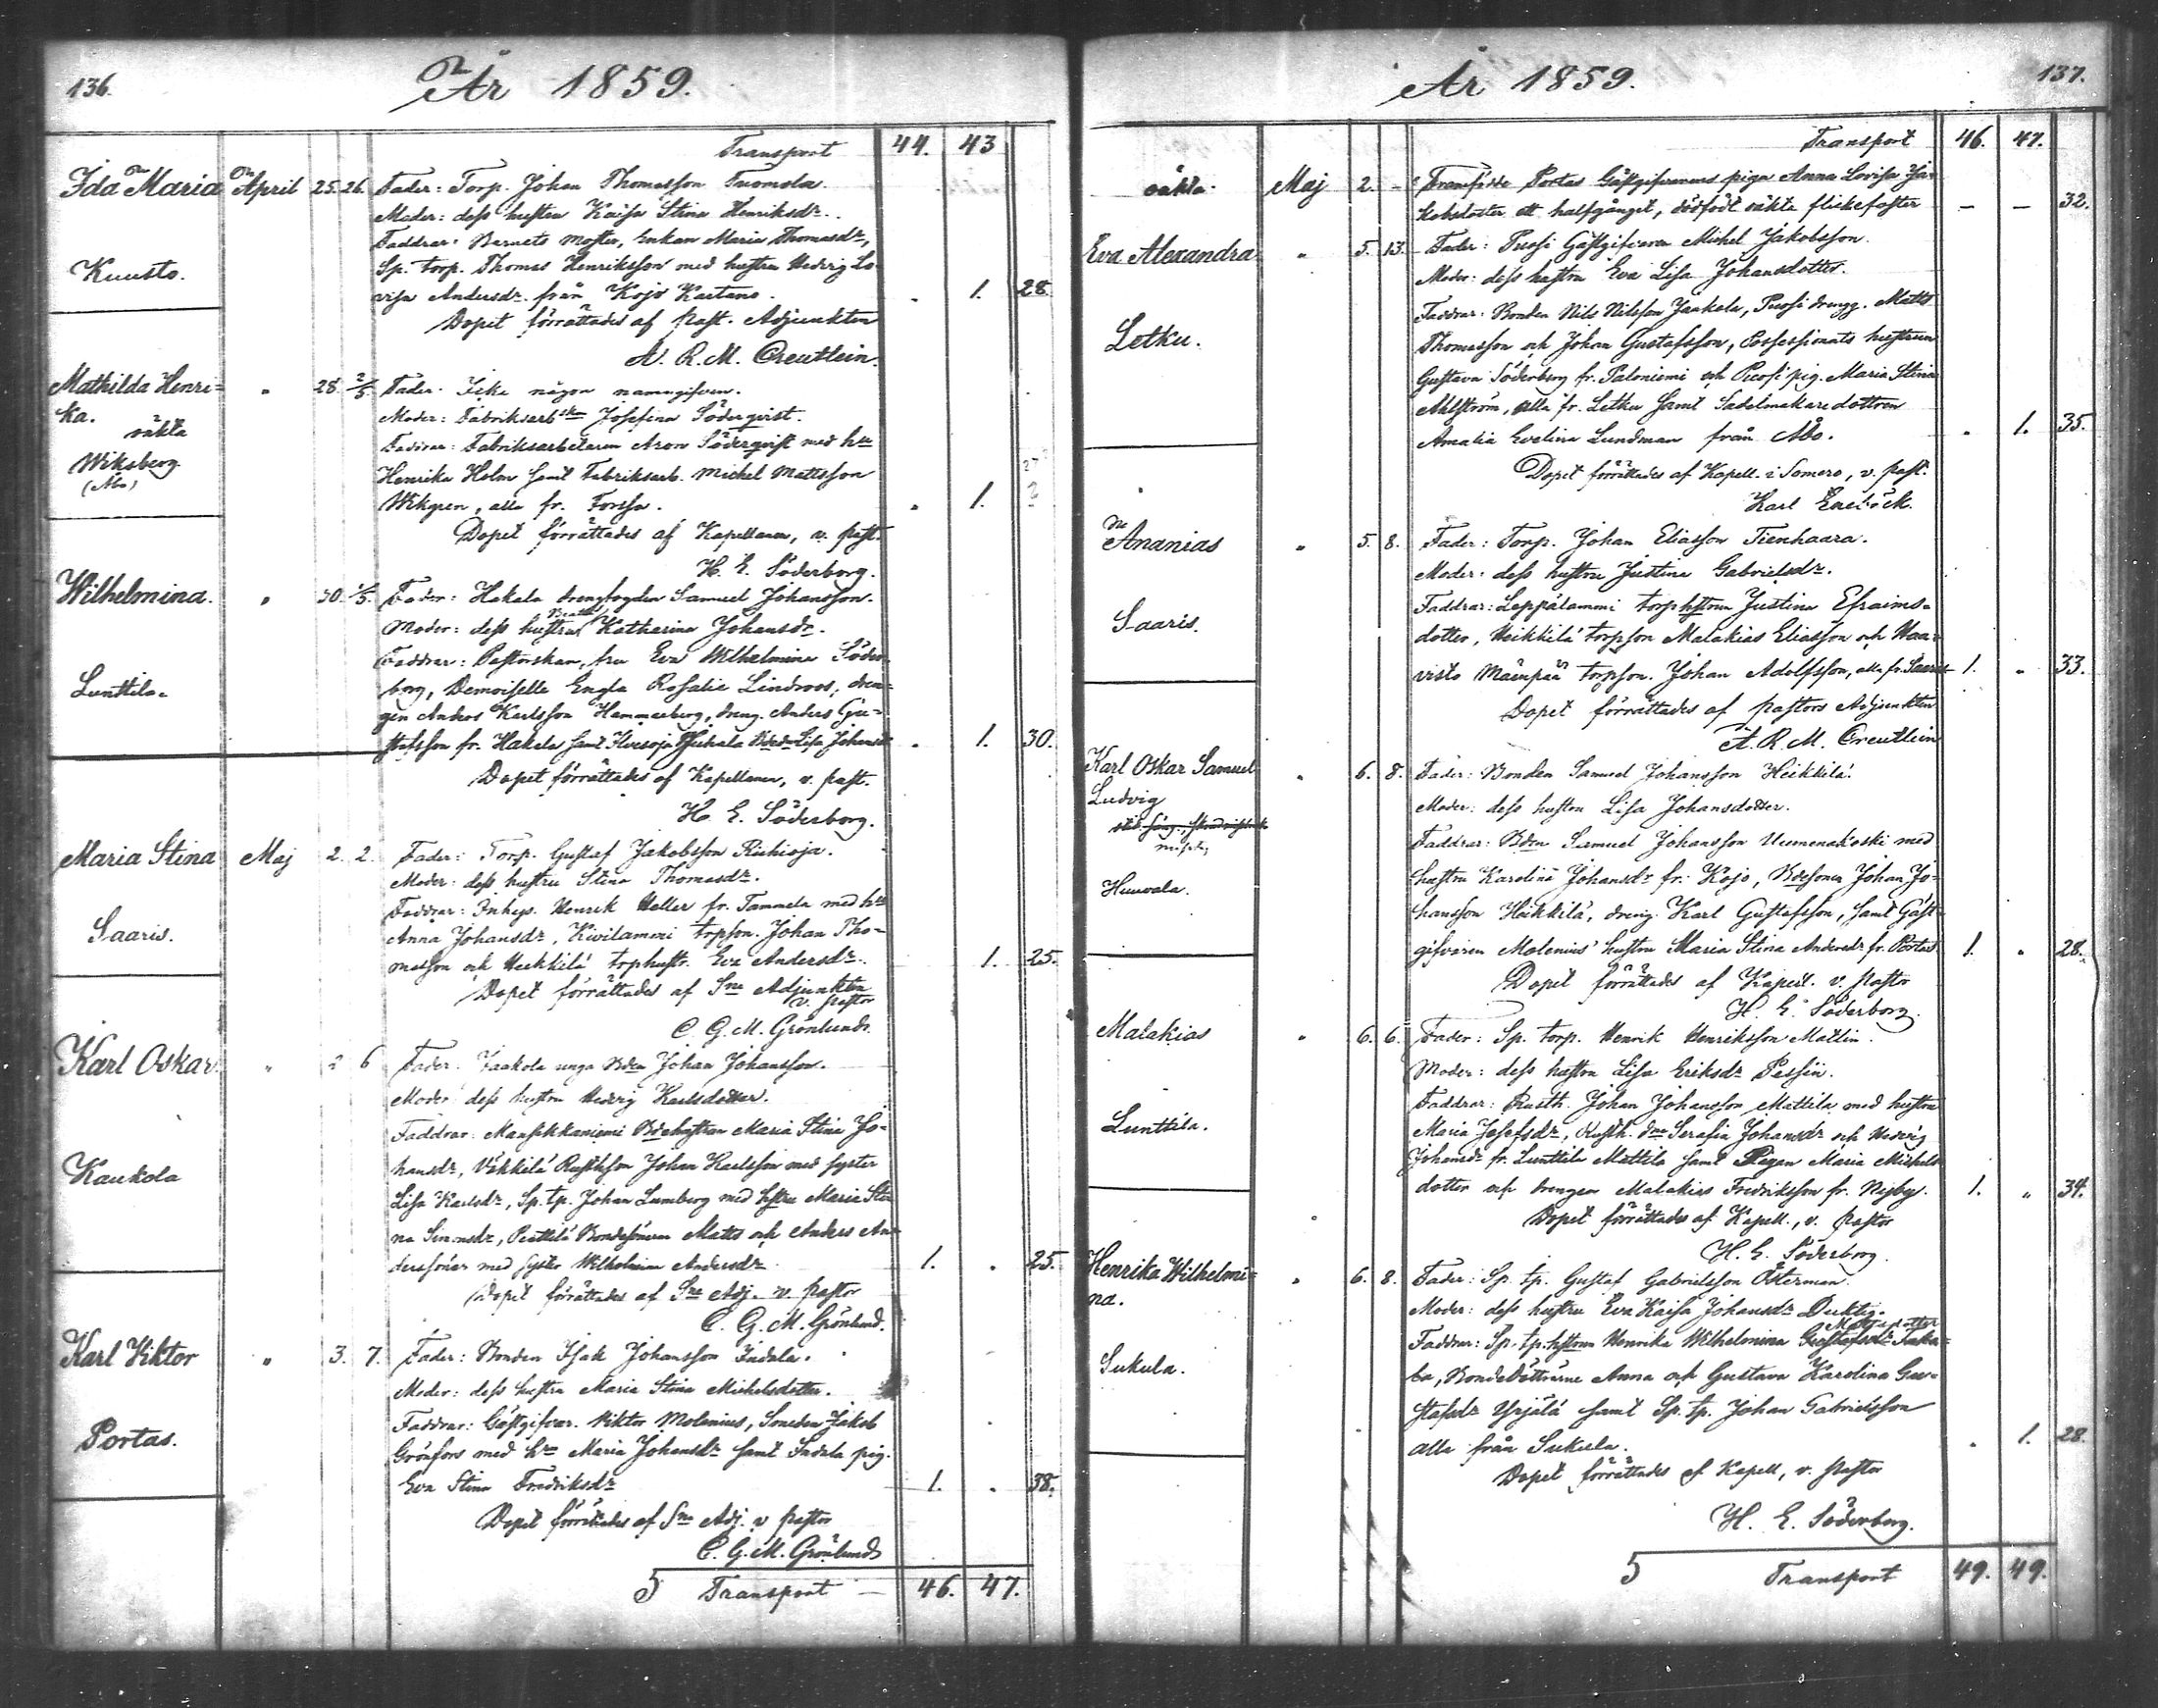 136.
År 1859.
Transport 44. 43
Ida Maria April 25. 26. Fader: Torp. Johan Thomasson Tuomola.
Moder: dess hustru Kaisa Stina Henriksdr.
Faddrar: Barnets moster, Enkan Maria Thomasdr,
Kuusto. Sp. torp. Thomas Henriksson med hustru Hedvig Lo-
visa Andersdr. från Kojo . 1. 28.
Dopet förrättades af Past. Adjunkten
A. R. M. Creutlein.
Mathilda Henri= " 28. 2/5. Fader: Icke någon namngifven.
ka. Moder: Fabriksarbskan Josefina Söderqvist.
oäkta Faddrar: Fabriksarbetaren Aron Söderqvist med hu
Wiksberg Henrika Holm samt Fabriksarb. Michel Mattsson
(Åbo) Wikgren, alla fr. Forssa. . 1.
Dopet förrättades af Kapellanen, v. past.
H. E. Söderborg.
Wilhelmina. " 30. 1/5. Fader: Hakala drengfogden Samuel Johansson.
Moder: dess hustru Katharina Johansdr.
Faddrar: Pastorskan, fru Eva Wilhelmina Söder-
Lunttila. borg, Demoiselle Engla Rosalie Lindroos, dren-
gen Anders Karlsson Hammarberg, dreng. Anders Gu-
stafsson fr. Hakala samt Lisa Johansdr . 1. 30.
Dopet förrättades af Kapellanen, v. past.
H. E. Söderborg.
Maria Stina Maj 2. 2. Fader: Torp. Gustaf Jakobsson Riihioja.
Moder: dess hustru Stina Thomasdr.
Faddrar: Inhys. Henrik Heller fr. Tammela med hu
Saaris. Anna Johansdr, Kivilammi torpson. Johan Tho-
masson och Heikkilä torphustr. Eva Andersdr. 1. 25.
Dopet förrättades af Sne Adjunkten
v. pastor
C. G. M. Grönlund.
Karl Oskar " 2 6 Fader: Jaakola unga Bden Johan Johansson.
Moder: dess hustru Hedvig Karlsdotter.
Faddrar: Mansikkaniemi Bdehustrun Maria Stina Jo-
Kaukola hansdr, Rusthson Johan Karlsson med syster
Lisa Karlsdr, Sp. tp. Johan Lumberg med hstru Maria Sti-
na Simonsdr, Penttilä Bondesönerne Matts och Anders An-
derssöner med syster Wilhelmina Andersdr 1. . 25.
Dopet förrättades af Sne Adj. v. pastor
C. G. M. Grönlund.
Karl Viktor " 3. 7. Fader: Bonden Isak Johansson Indala.
Moder: dess hustru Maria Stina Michelsdotter.
Faddrar: Gästgifvar. Viktor Molenius, Smeden Jakob
Portas. Grönfors med hu Maria Johansdr samt Indala pig.
Eva Stina Fredriksdr 1. . 38.
Dopet förrättades af Sne Adj. v pastor
C. G. M. Grönlund
5 Transport 46. 47.
År 1859. 137.
Transport 46. 47.
oäkta. Maj 2. - Portas Gästgifvarens piga Anna Lovisa Ja-
kobsdotter ett halfgånget, dödfödt oäkta flickefoster - - 32.
Eva Alexandra " 5. 13. Fader: Puosi Gästgifvaren Michel Jakobsson.
Moder: dess hustru Eva Lisa Johansdotter.
Faddrar: Bonden Nils Nilsson Jaakola, Puosi drengg. Matts
Letku. Thomasson och Johan Gustafsson, Possessionats hustrun
Gustava Söderborg fr. Paloniemi och Puosi pig. Maria Stina
Ahlström, alla fr. Letku samt Sadelmakaredottren
Amalia Evelina Lundman från Åbo. . 1. 35.
Dopet förrättades af Kapell. i Somero, v. past.
Karl Enebäck.
Ananias " 5. 8. Fader: Torp. Johan Eliasson Tienhaara.
Moder: dess hustru Justina Gabrielsdr.
Faddrar: Leppälammi torphstrun Justina Efraims-
Saaris. dotter, Heikkilä torpson Malakias Eliasson och Haa-
visto Mäenpää torpson. Johan Adolfsson, alla fr. Saaris 1. . 33.
Dopet förrättades af pastors Adjunkten
A. R. M. Creutlein
Karl Oskar Samuel " 6. 8. Fader: Bonden Samuel Johansson Heikkilä.
Ludvig Moder: dess hustru Lisa Johansdotter.
Faddrar: Bden Samuel Johansson Uumenakoski med
Huuvala. hustru Karolina Johansdr fr. Kojo, Bdesonen Johan Jo-
hansson Heikkilä, dreng. Karl Gustafsson, samt Gäst-
gifvaren Molenius' hustru Maria Stina Andersdr fr. Portas 1. . 28.
Dopet förrättades af Kapell. v. pastor
H. E. Söderborg.
Malakias " 6. 6. Fader: Sp. torp. Henrik Henriksson Mattlin.
Moder: dess hustru Lisa Eriksdr Pessin.
Faddrar: Rusth. Johan Johansson Mattila med hustru
Lunttila. Maria Josefsdr, Rusth. dne Serafia Johansdr och Hedvig
Johansdr fr. Lunttila Mattila samt Pigan Maria Michels
dotter och drengen Malakias Fredriksson fr. Nisby. 1. " 34.
Dopet förrättades af Kapell., v. pastor
H. E. Söderborg.
Henrika Wilhelmi= " 6. 8. Fader: Sp. tp. Gustaf Gabrielsson Österman.
na. Moder: dess hustru Eva Kaisa Johansdr Duktig.
Faddrar: Sp. tp. hstrun Henrika Wilhelmina
Sukula. Bondedöttrarne Anna och Gustava Karolina Gu-
stafsdr Yrjälä samt Sp. tp. Johan Gabrielsson
alla från Sukula. . 1. 28.
Dopet förrättades af Kapell, v. pastor
H. E. Söderborg.
5 Transport 49. 49.